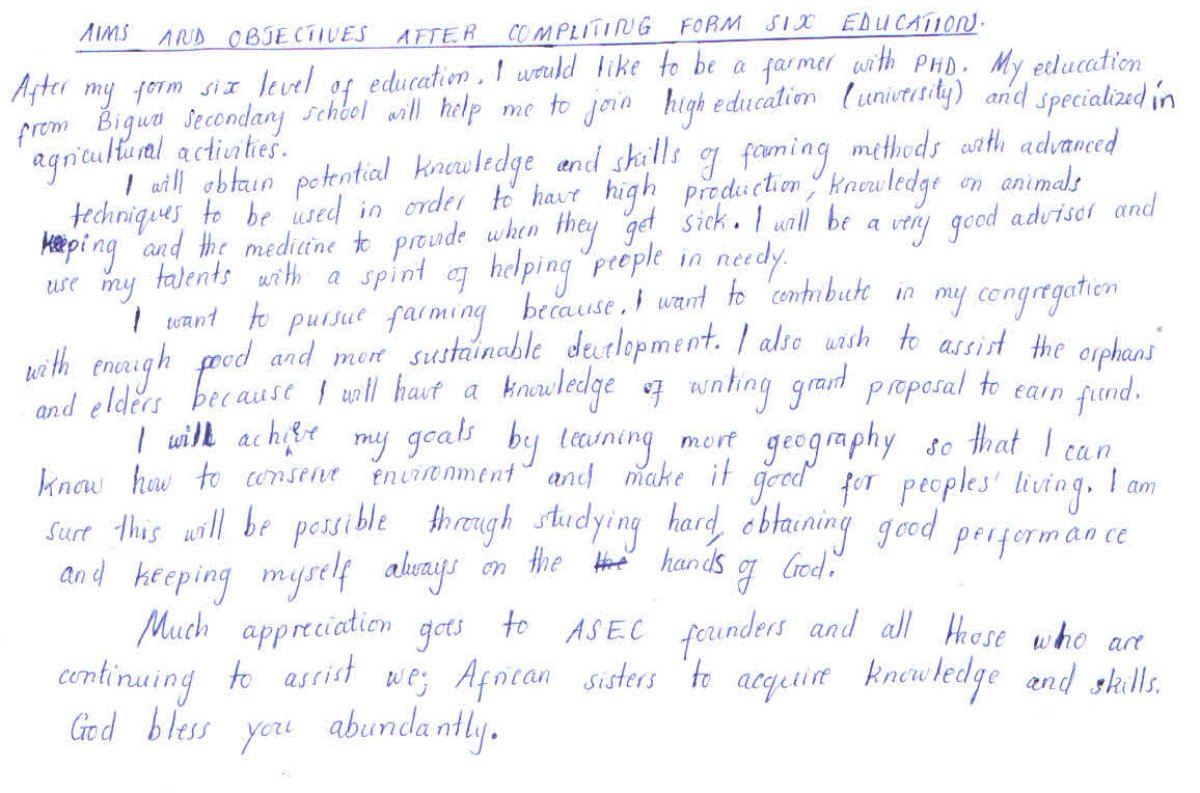 AIMS AND OBJECTIVES AFTER COMPLITING FORM SIX EDUCATION.
After my form six level of education. I would like to be a farmer with PHD. My education
from Bigwa Secondary school will help me to join high education (university) and specialized in
agricultural activities.
I will obtain potential knowledge and skills of faming methods with advanced
techniques to be used in order to have high production, knowledge on animals
keeping and the medicine to provide when they get sick. I will be a very good advisor and
use my talents with a spirit of helping people in needy.
I want to pursue farming because. I want to contribute in my congregation
with enough food and more sustainable development. I also wish to assist the orphans
and elders because I will have a knowledge of writing grant proposal to earn fund.
I will achieve my goals by learning more geography so that I can
know how to conserve environment and make it good for peoples' living. I am
sure this will be possible through studying hard, obtaining good performance
and keeping myself always on the the hands of God.
Much appreciation goes to ASEC founders and all those who are
continuing to assist we; African sisters to acquire knowledge and skills.
God bless you abundantly.